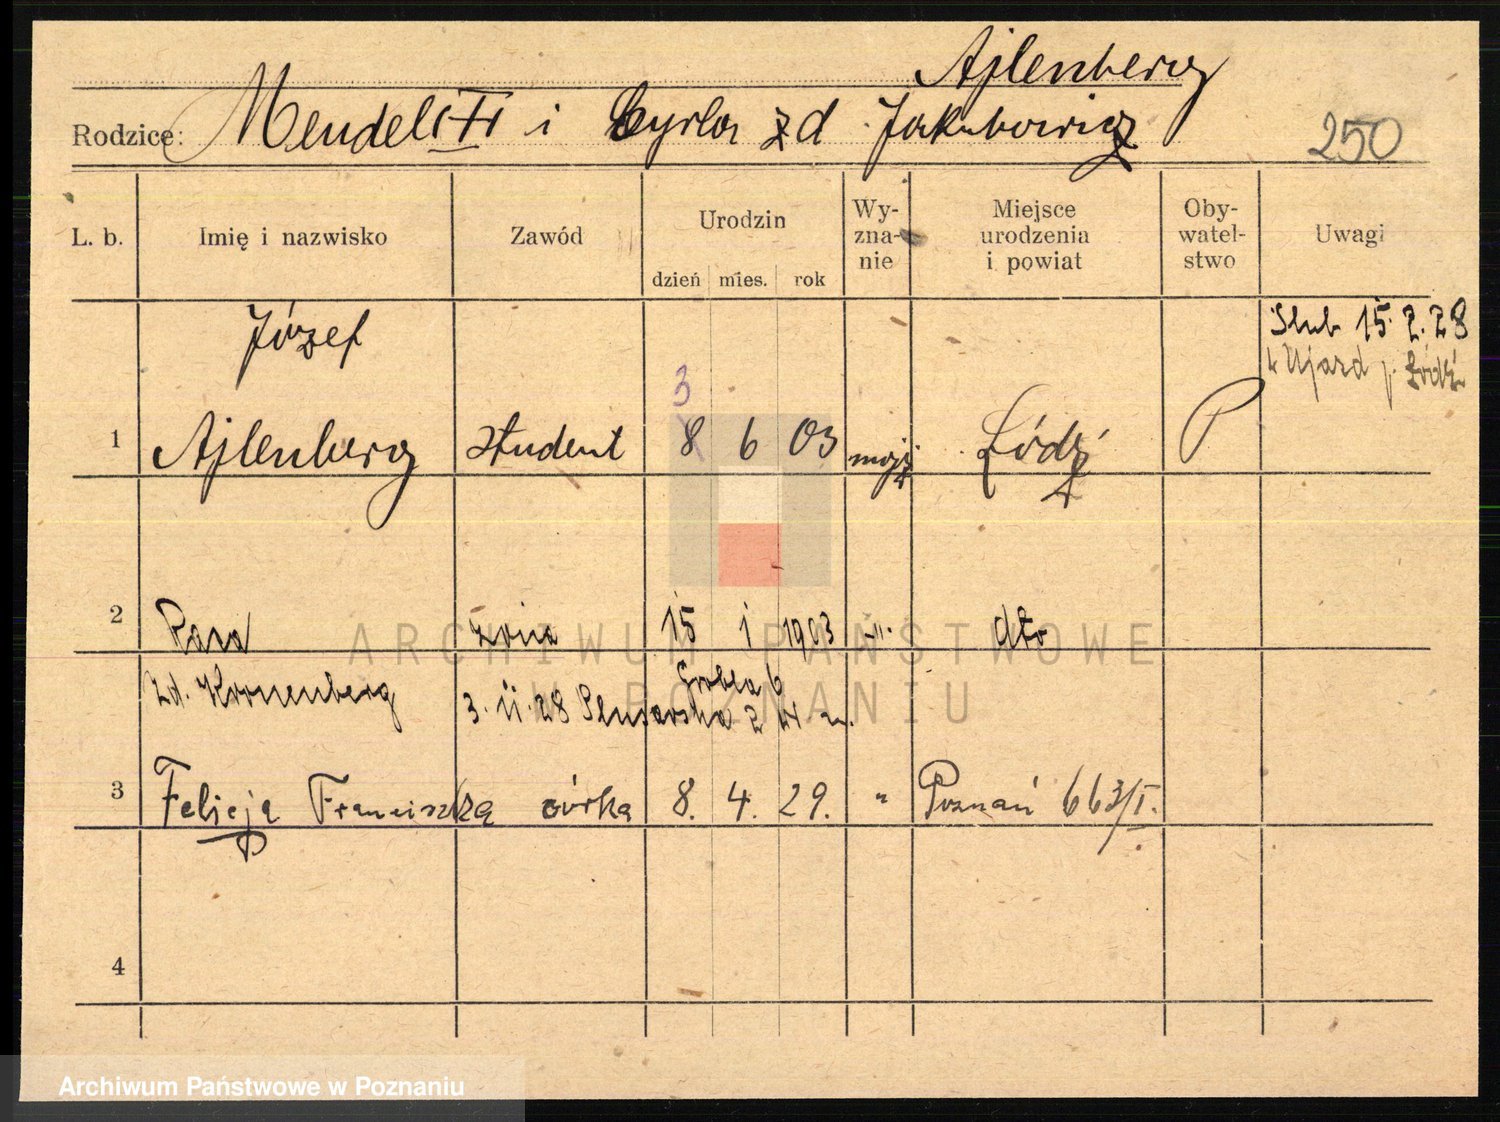 Ajlenberg
Rodzice: Mendel i Cyrla zd Jakubowicz
250
L. b. Imię i nazwisko Zawód Urodzin Wy-zna-nie Miejsce urodzenia i powiat Oby-watel-stwo Uwagi
dzień mies. rok
Józef
Ślub 15.2.28
w Ujazd p. Łódź
3
1 Ajlenberg student 8 6 03 mojż Łódź P
2 żona 15 1 1903 -"- dto
zd. Kronenberg
Grobla 6
3.11.28 Ślusarska
3 Felicja Franciszka córka 8. 4. 29. " Poznań 663/I.
4
ARCHIWUM PAŃSTWOWE
W POZNANIU
Archiwum Państwowe w Poznaniu